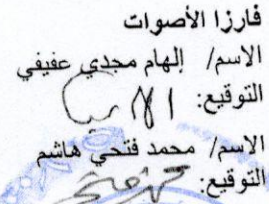 فارزا الأصوات
الاسم/ إلهام مجدي عفيفي
التوقيع:
الاسم/ محمد فتحي هاشم
التوقيع: